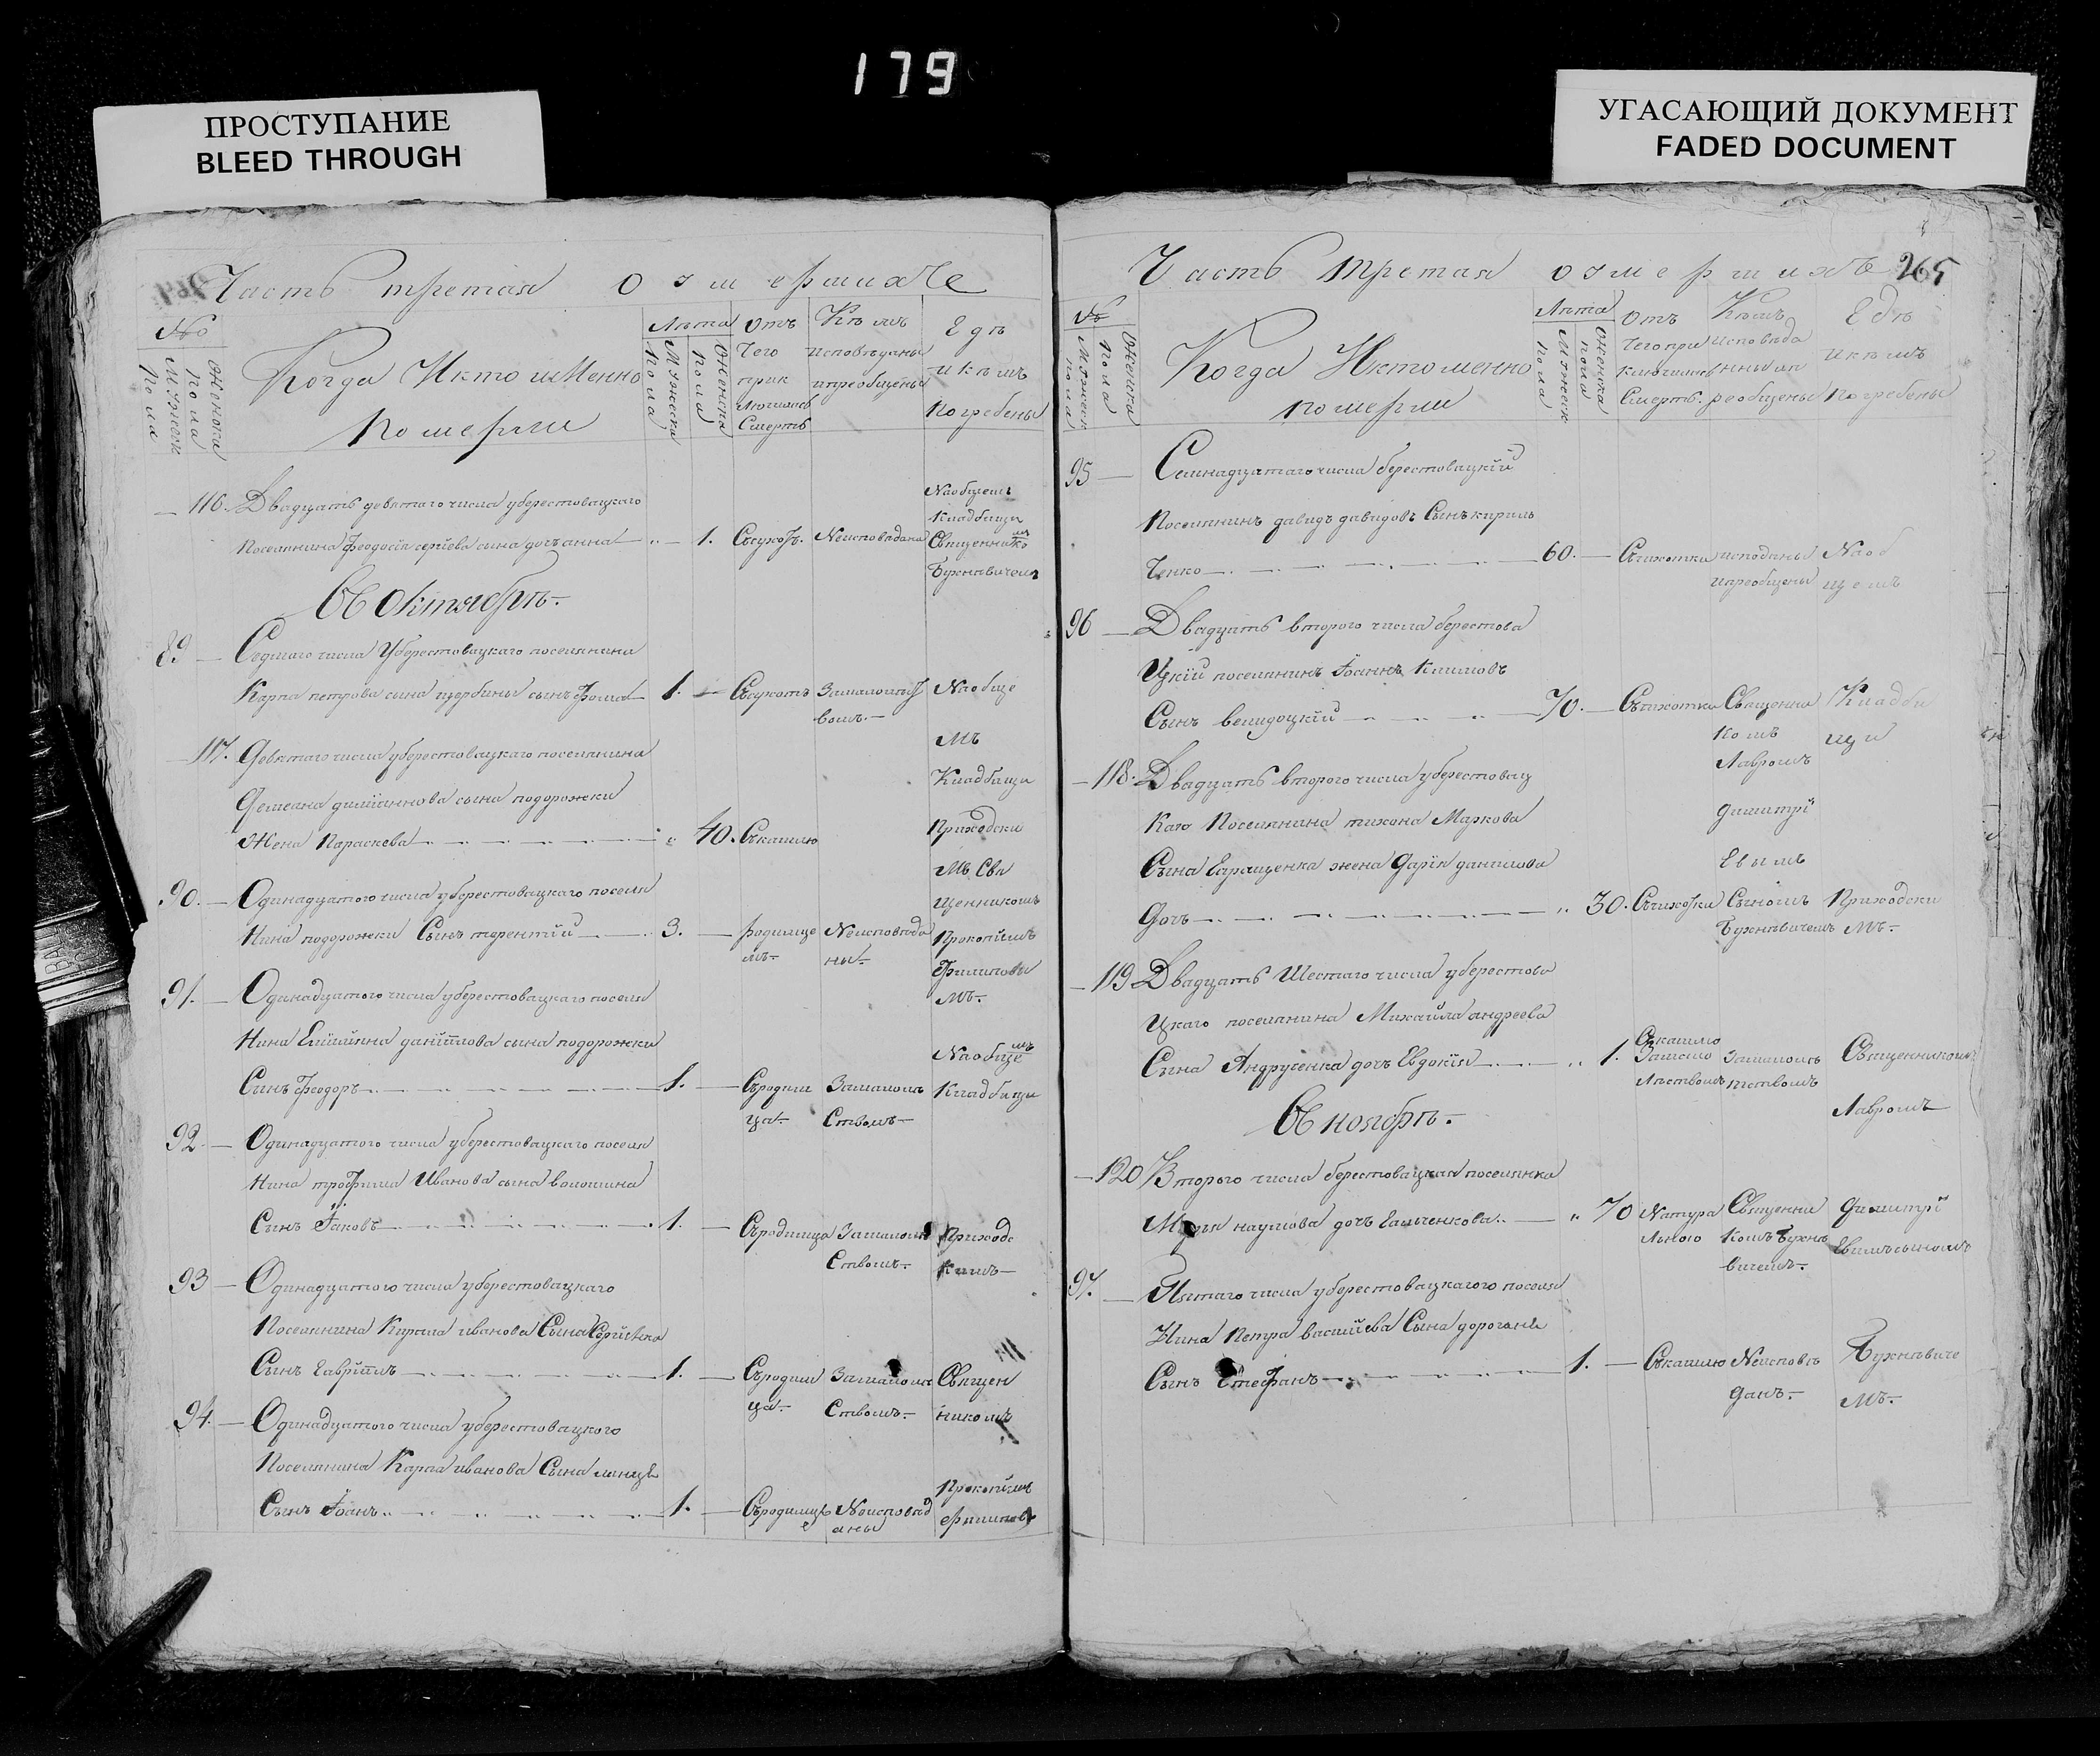 179
ПРОСТУПАНИЕ
BLEED THROUGH
УГАСАЮЩИЙ ДОКУМЕНТ
FADED DOCUMENT
Часть третая о умершихъ
№
Мужеск пола
Женска пола
Когда И кто именно
померли
Лѣта
Мужеска пола
Женска пола
Отъ
чего
прик
лючилась
Смерть
Кѣмъ
исповѣданы
и преобщены
Гдѣ
и кѣмъ
погребены
116. Двадцать девятаго числа у берестовацкаго
поселянина феодосія сергіева сына дочь анна 1. Неисповедана
На общемъ
Кладбищи
Священнико
Бужневичемъ
Въ Октябрѣ.
89 Седмаго числа У берестовацкаго поселянина
Карпа петрова сына щербины сынъ Фома 1. За малолѣт
вомъ.
На обще
мъ
117. Девятаго числа у берестовацкаго поселянина
Кладбищи
сына подорожки
Жена Параскева 40. Съ кашлю
Приходски
мъ Свя
щенникомъ
90. Одинадцатого числа у берестовацкаго поселя
нина подорожки Сынъ терентій 3. родимце
мъ. Неисповѣда
ны. Прокопіемъ
Филипови
мъ.
91. Одинадцатого числа у берестовацкаго поселя
нина даніилова сына подорожки
Сынъ Феодоръ 1. Съ родим
ца За малолѣ
Ствомъ
На общемъ
Кладбищи
92. Одинадцатого числа у берестовацкаго поселя
нина трофима Иванова сына волошина
Сынъ Іаковъ 1. Съ родимца За малолѣ
Ствомъ. Приходс
кимъ
93 Одинадцатого числа у берестовацкаго
Поселянина Кирила иванова Сына
Сынъ Гавріилъ 1. Съ родим
ца За малолѣ
Ствомъ. Священ
никомъ
94. Одинадцатого числа у берестовацкого
Поселянина Карпа иванова Сына
Сынъ Іоанъ 1. Съ родимце Неисповѣд
аны Прокопіемъ
Часть третая о умершихъ 265
№
Мужеск пола
Женска пола
Когда И кто именно
померли
Лѣта
Мужеск пола
Женска пола
Отъ
чего при
ключилась
Смерть.
Кѣмъ
исповѣда
нны ип
реобщены
Гдѣ
и кѣмъ
погребены
95 Семнадцатаго числа берестовацкій
Поселянинъ давидъ давидовъ Сынъ кирил
ченко 60. Съ чихотки исподаны
и преобщены На об
щемъ
96 Двадцать второго числа берестова
цкій поселянинъ Іоаннъ Климовъ
Сынъ велидоцкій 70. Съ чихотки Священни
комъ
Лавромъ
Кладби
щи
118. Двадцать второго числа у берестовац
каго Поселянина тихона Маркова
Димитрі
Сына Геращенка жена Дарія данилова
евымъ
Дочь 30. Съ чихотки Сыномъ
Бужневичемъ Приходски
мъ.
119 Двадцать Шестаго числа у берестова
цкаго поселянина Михаила андреева
Сына Андрусенка дочь Евдокія 1. Съ кашлю
За мало
лѣтвомъ За малолѣ
тствомъ Священникомъ
Лавромъ
Въ ноябрѣ.
120 Второго числа берестовацкая поселянка
Марья наумова дочь 70 Натура
льного Священни
комъ Бужне
вичемъ. Димитрі
евымъ сыномъ
97. Пятаго числа у берестовацкагого поселя
нина Петра василіева Сына дорогана
Сынъ Стефанъ 1. Съ кашлю Неисповѣ
данъ. Бужневиче
мъ.